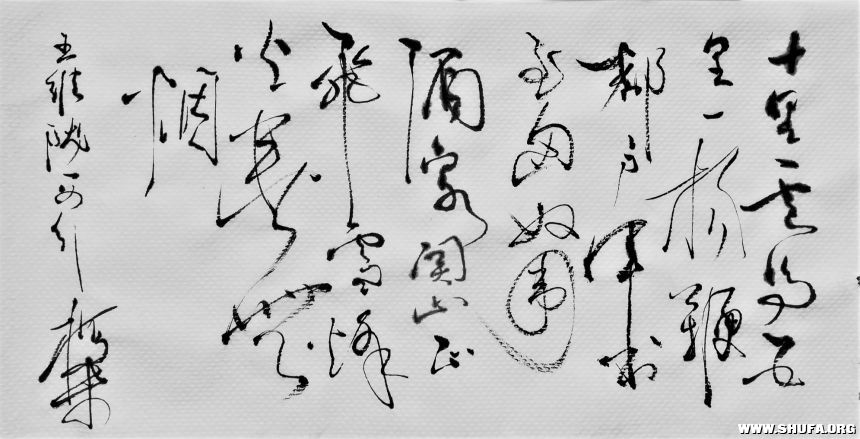 十里一走马五
里一扬鞭
都户军书
至匈奴围
酒泉关山正
飞雪烽
火断无
烟
王维陇西行
WWW.SHUFA.ORG